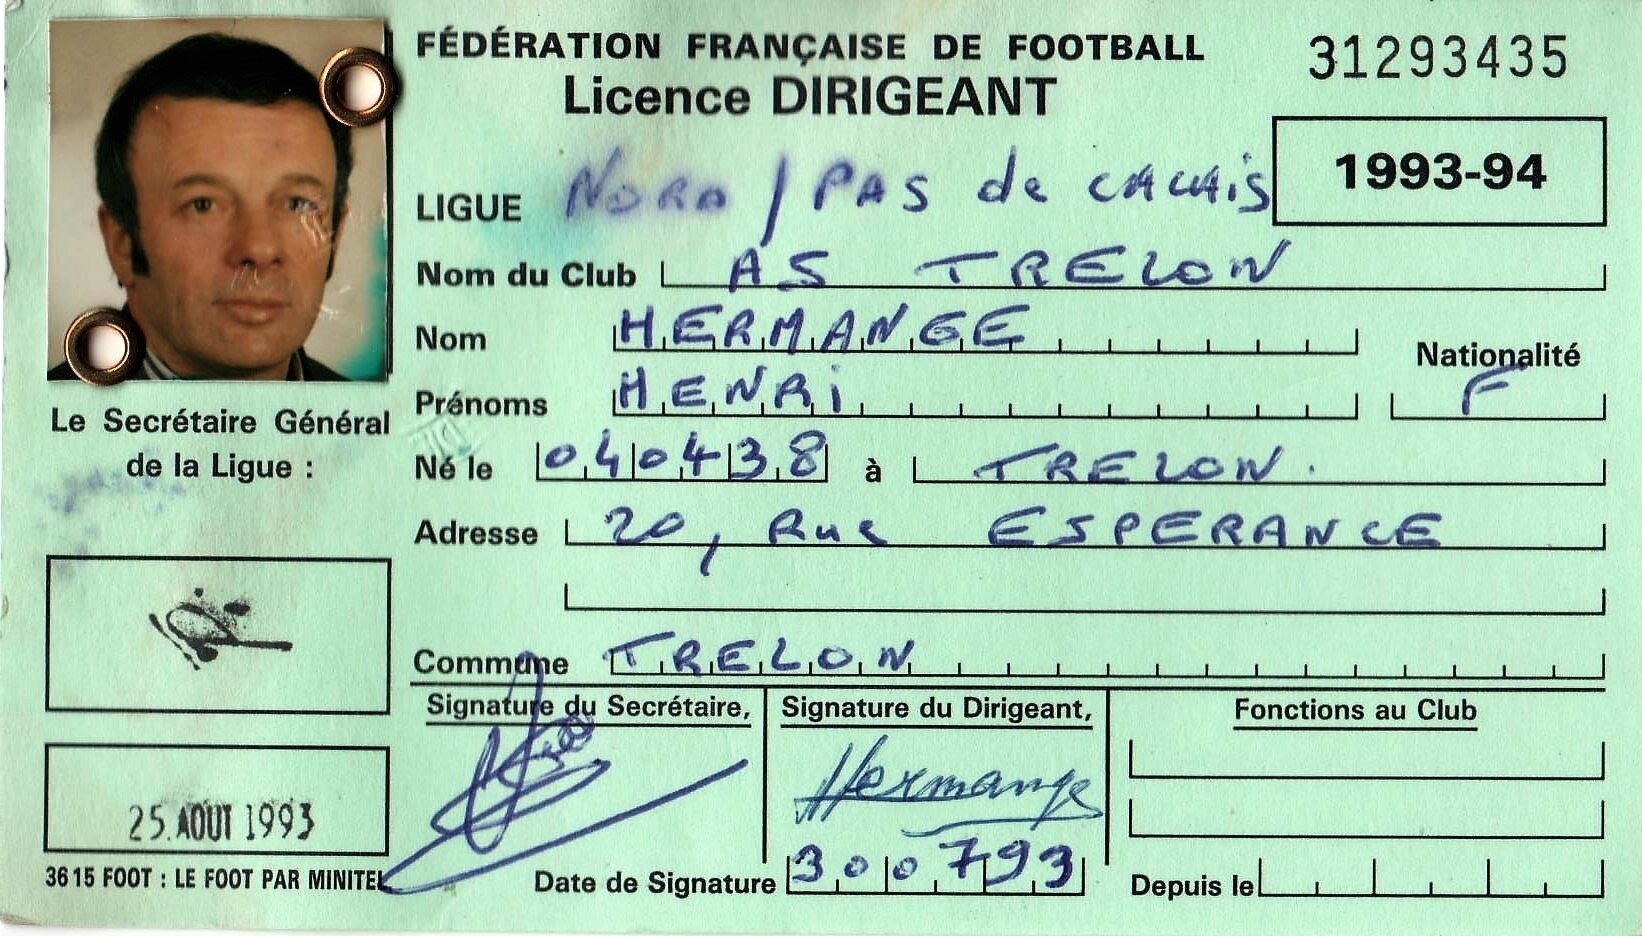 FÉDÉRATION FRANÇAISE DE FOOTBALL
31293435
Licence DIRIGEANT
1993-94
LIGUE NORD / PAS de CALAIS
Nom du Club AS TRELON
Nom HERMANGE
Nationalité
F
Prénoms HENRI
Le Secrétaire Général
de la Ligue :
Né le 040438 à TRELON.
Adresse 20, Rue ESPERANCE
Commune TRELON
Signature du Secrétaire,
Signature du Dirigeant,
Fonctions au Club
Hermange
25. AOUT 1993
3615 FOOT : LE FOOT PAR MINITEL
Date de Signature 300793
Depuis le